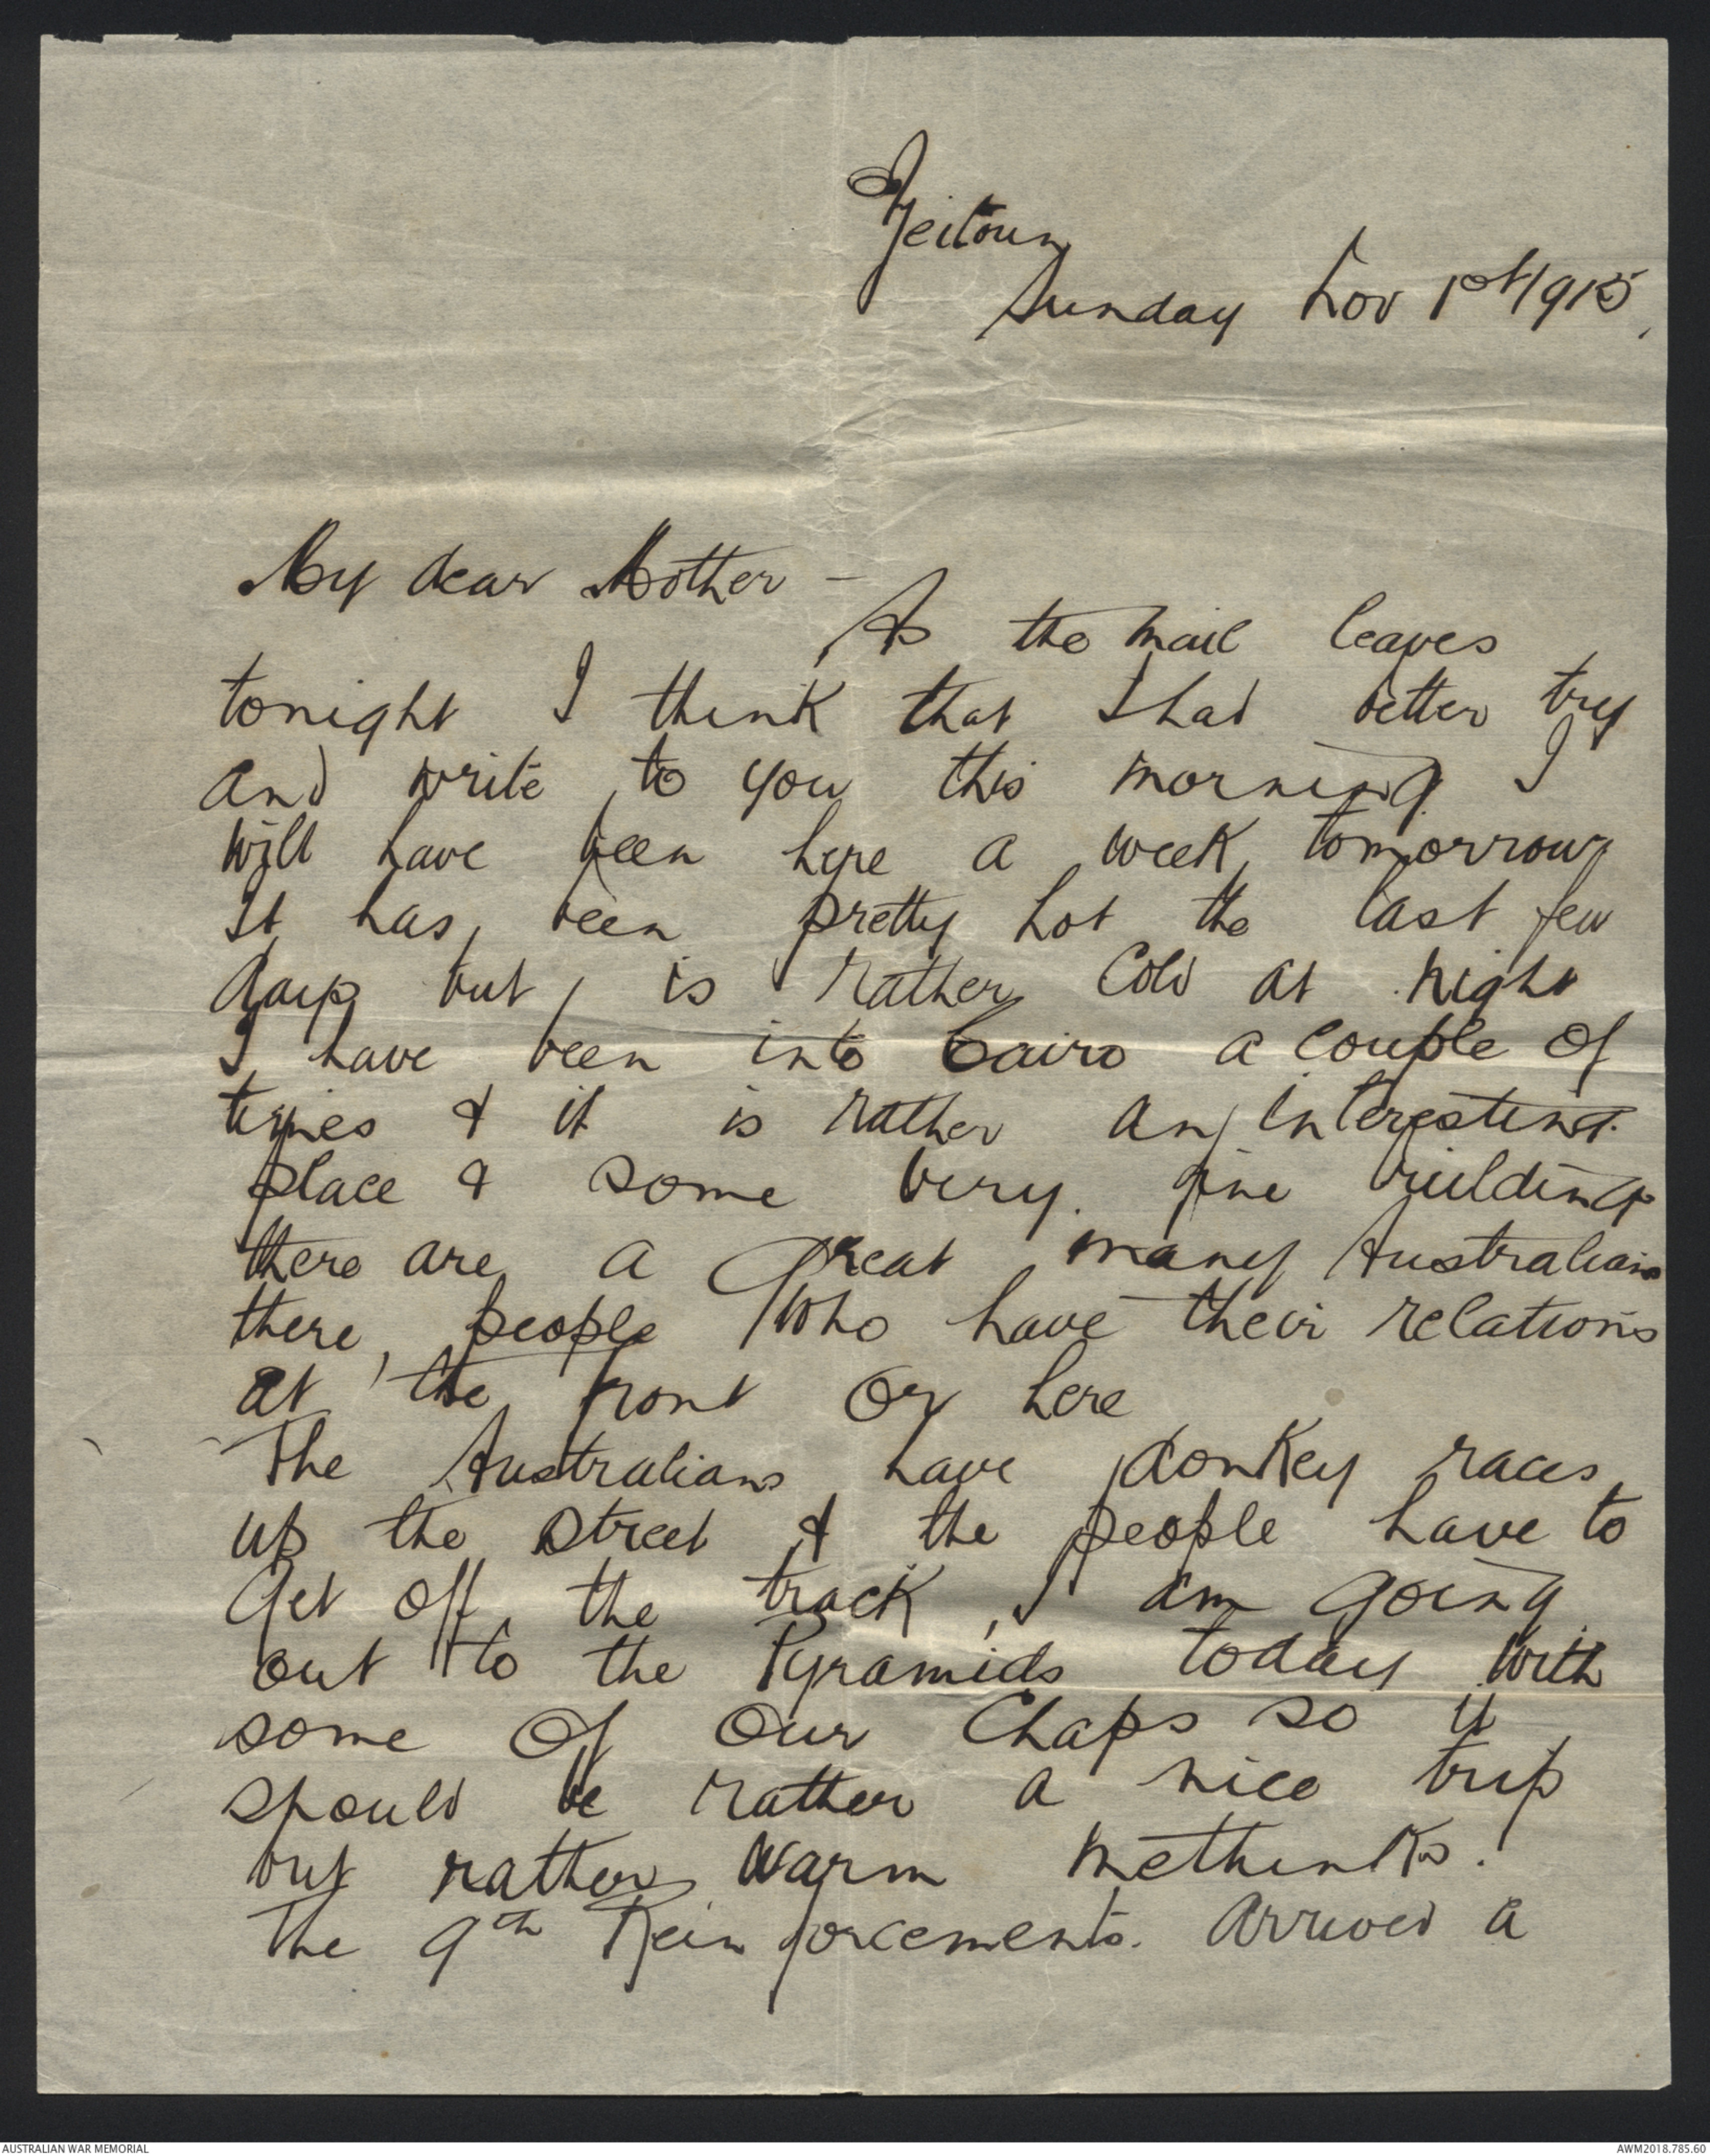 Zeitoun
Sunday Nov 1st/1915,
My dear Mother –
As the mail leaves
tonight I think that I had better try
and write to you this morning. I
will have been here a week tomorrow
It has been pretty hot the last few
days but is rather cold at night
I have been into Cairo a couple of
times & it is rather an interesting
place & some very fine buildings
there are a great many Australians
there, people who have their relations
at the front or here
The Australians have donkey races
up the street & the people have to
get off the track, I am going
out to the Pyramids today with
some of our chaps so it
should be rather a nice trip
but rather warm methinks.
The 9th Reinforcements. arrived a
AUSTRALIAN WAR MEMORIAL
AWM2018.785.60